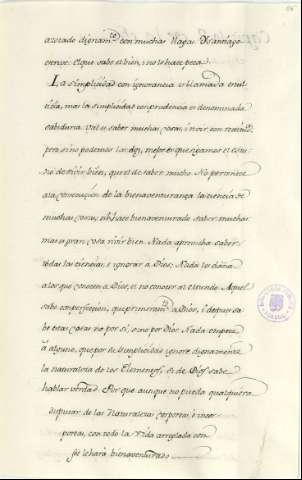 azotado dignam.te con muchas llagas Santiago
el que sabe el bien, i no lo haze peca.
La simplicidad con ignorancia es llamada inuti
lidad, mas la simplicidad con prudencia es denominada
sabiduria. Vale saber muchas cosas, i vivir con
pero si no podemos las dos, mejor es que sigamos el estu
dio de vivir bien, que el de saber mucho. No pertenece
a la consecucion de la bienaventurança la ciencia de
muchas cosas, ni haze bienaventurado saber muchas
mas es gran cosa vivir bien. Nada aprovecha saber
todas las ciencias, e ignorar a Dios; Nada les daña
a los que conocen a Dios, el no conocer al Mundo. Aquel
sabe con perfeccion, que primeram.te a Dios, i despues sa
be estas cosas no por si, sino por Dios. Nada empece
a alguno, que por su simplicidad ignore dignamente
la naturaleza de los Elementos, si de Dios sabe
hablar verdad. Por que aunque no pueda qualquiera
disputar de las Naturalezas corporeas i incor
poreas, con todo la Vida arreglada con
fee le hará bienaventurado